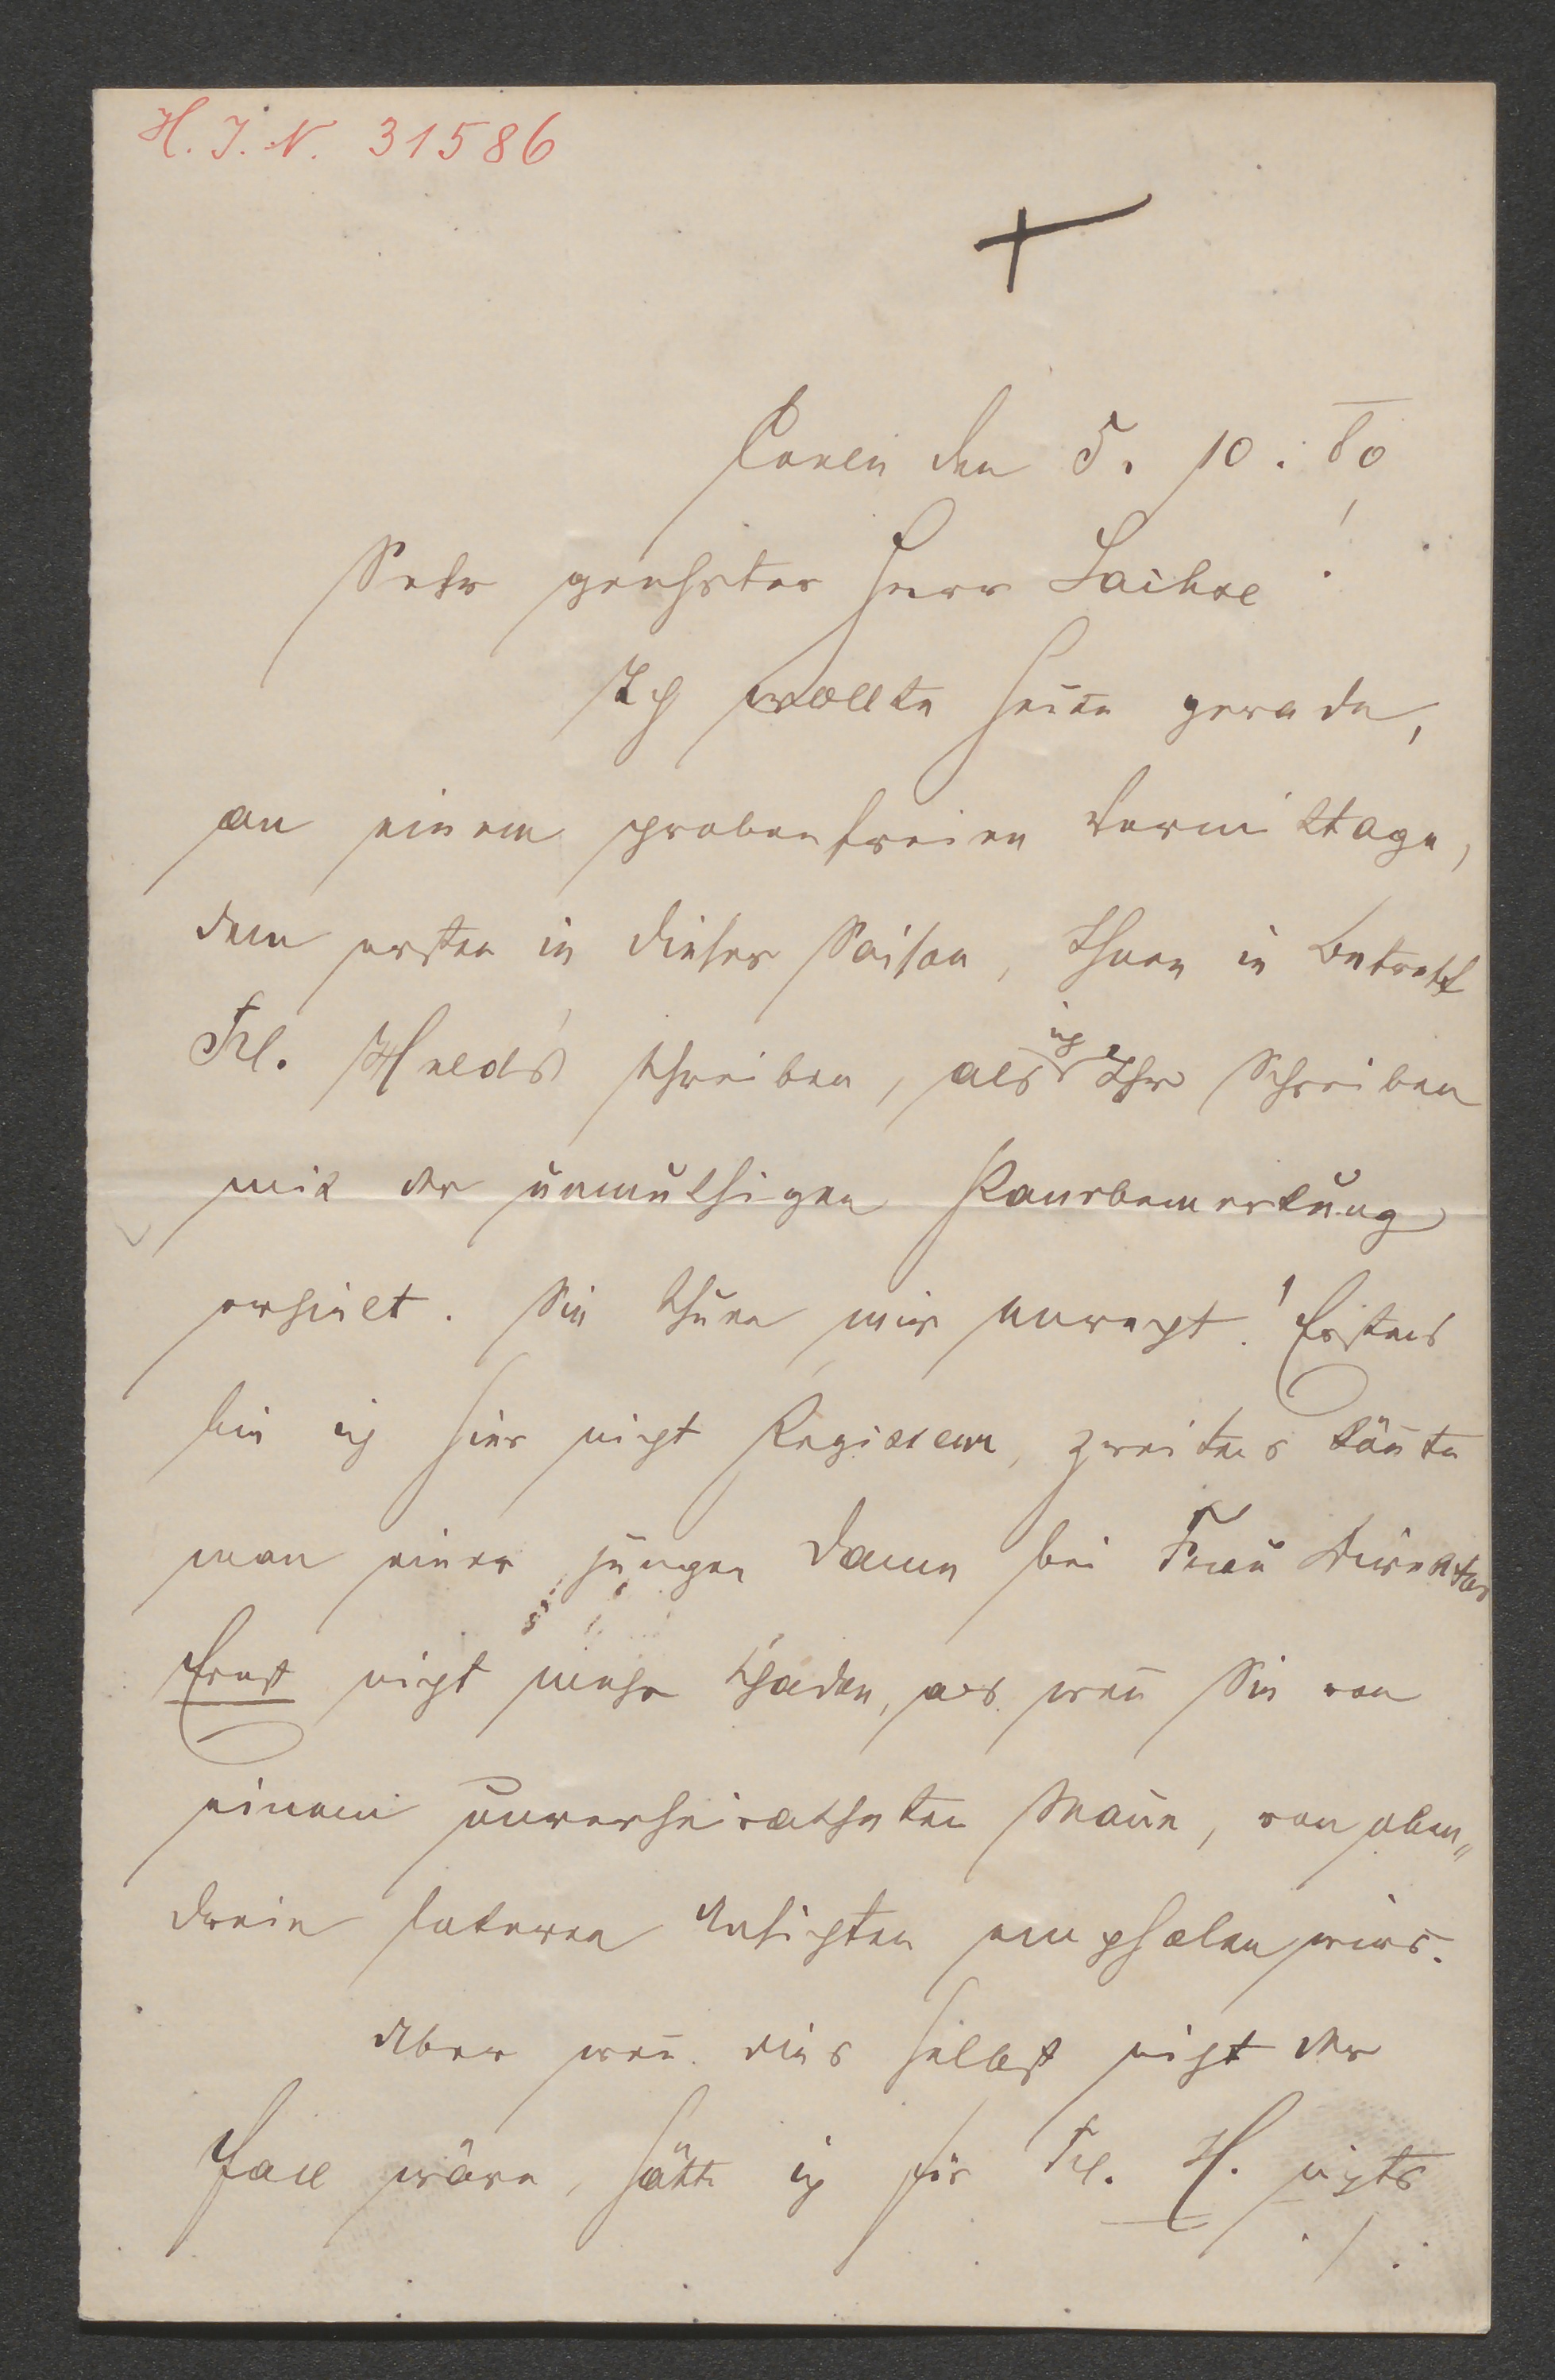 H. J. N. 31586
den 5. 10. 80
Sehr geehrter Herr
Ich wollte heute gerade,
an einem probenfreien Vormittage,
dem ersten in dieser Saison, Ihnen in Betreff
Frl. Held's schreiben, als ich Ihr Schreiben
mit der unmuthigen Randbemerkung
erhielt. Sie thuen mir unrecht! Erstens
bin ich hier nicht Regisseur, zweitens könnte
man einer jungen Dame bei Frau Direktor
Ernst nicht mehr schaden, als wenn Sie von
einem unverheiratheten Manne, von oben„
drein Ansichten empfohlen wird.
Aber wenn dies selbst nicht der
Fall wäre, hätte ich für Frl. H. nichts
./.